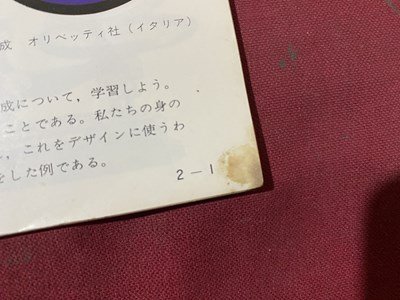 成 オリベッティ社(イタリア)
成について,学習しよう。
ことである。私たちの身の
,これをデザインに使うわ
をした例である。
2-1